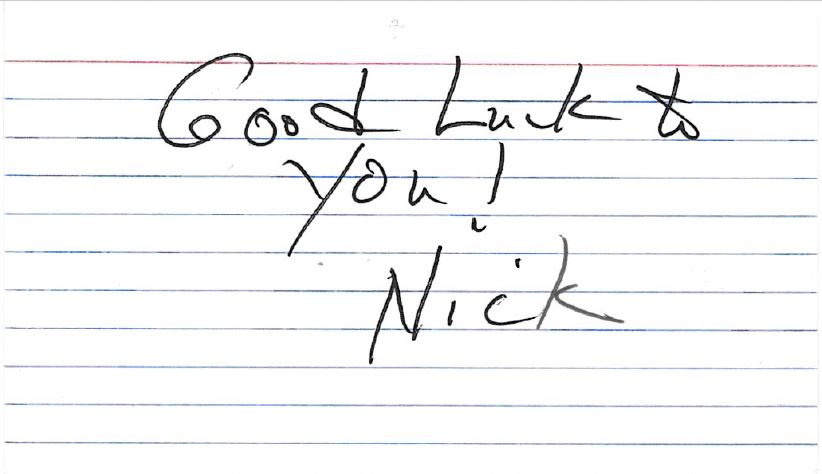 Good Luck to
you!
Nick